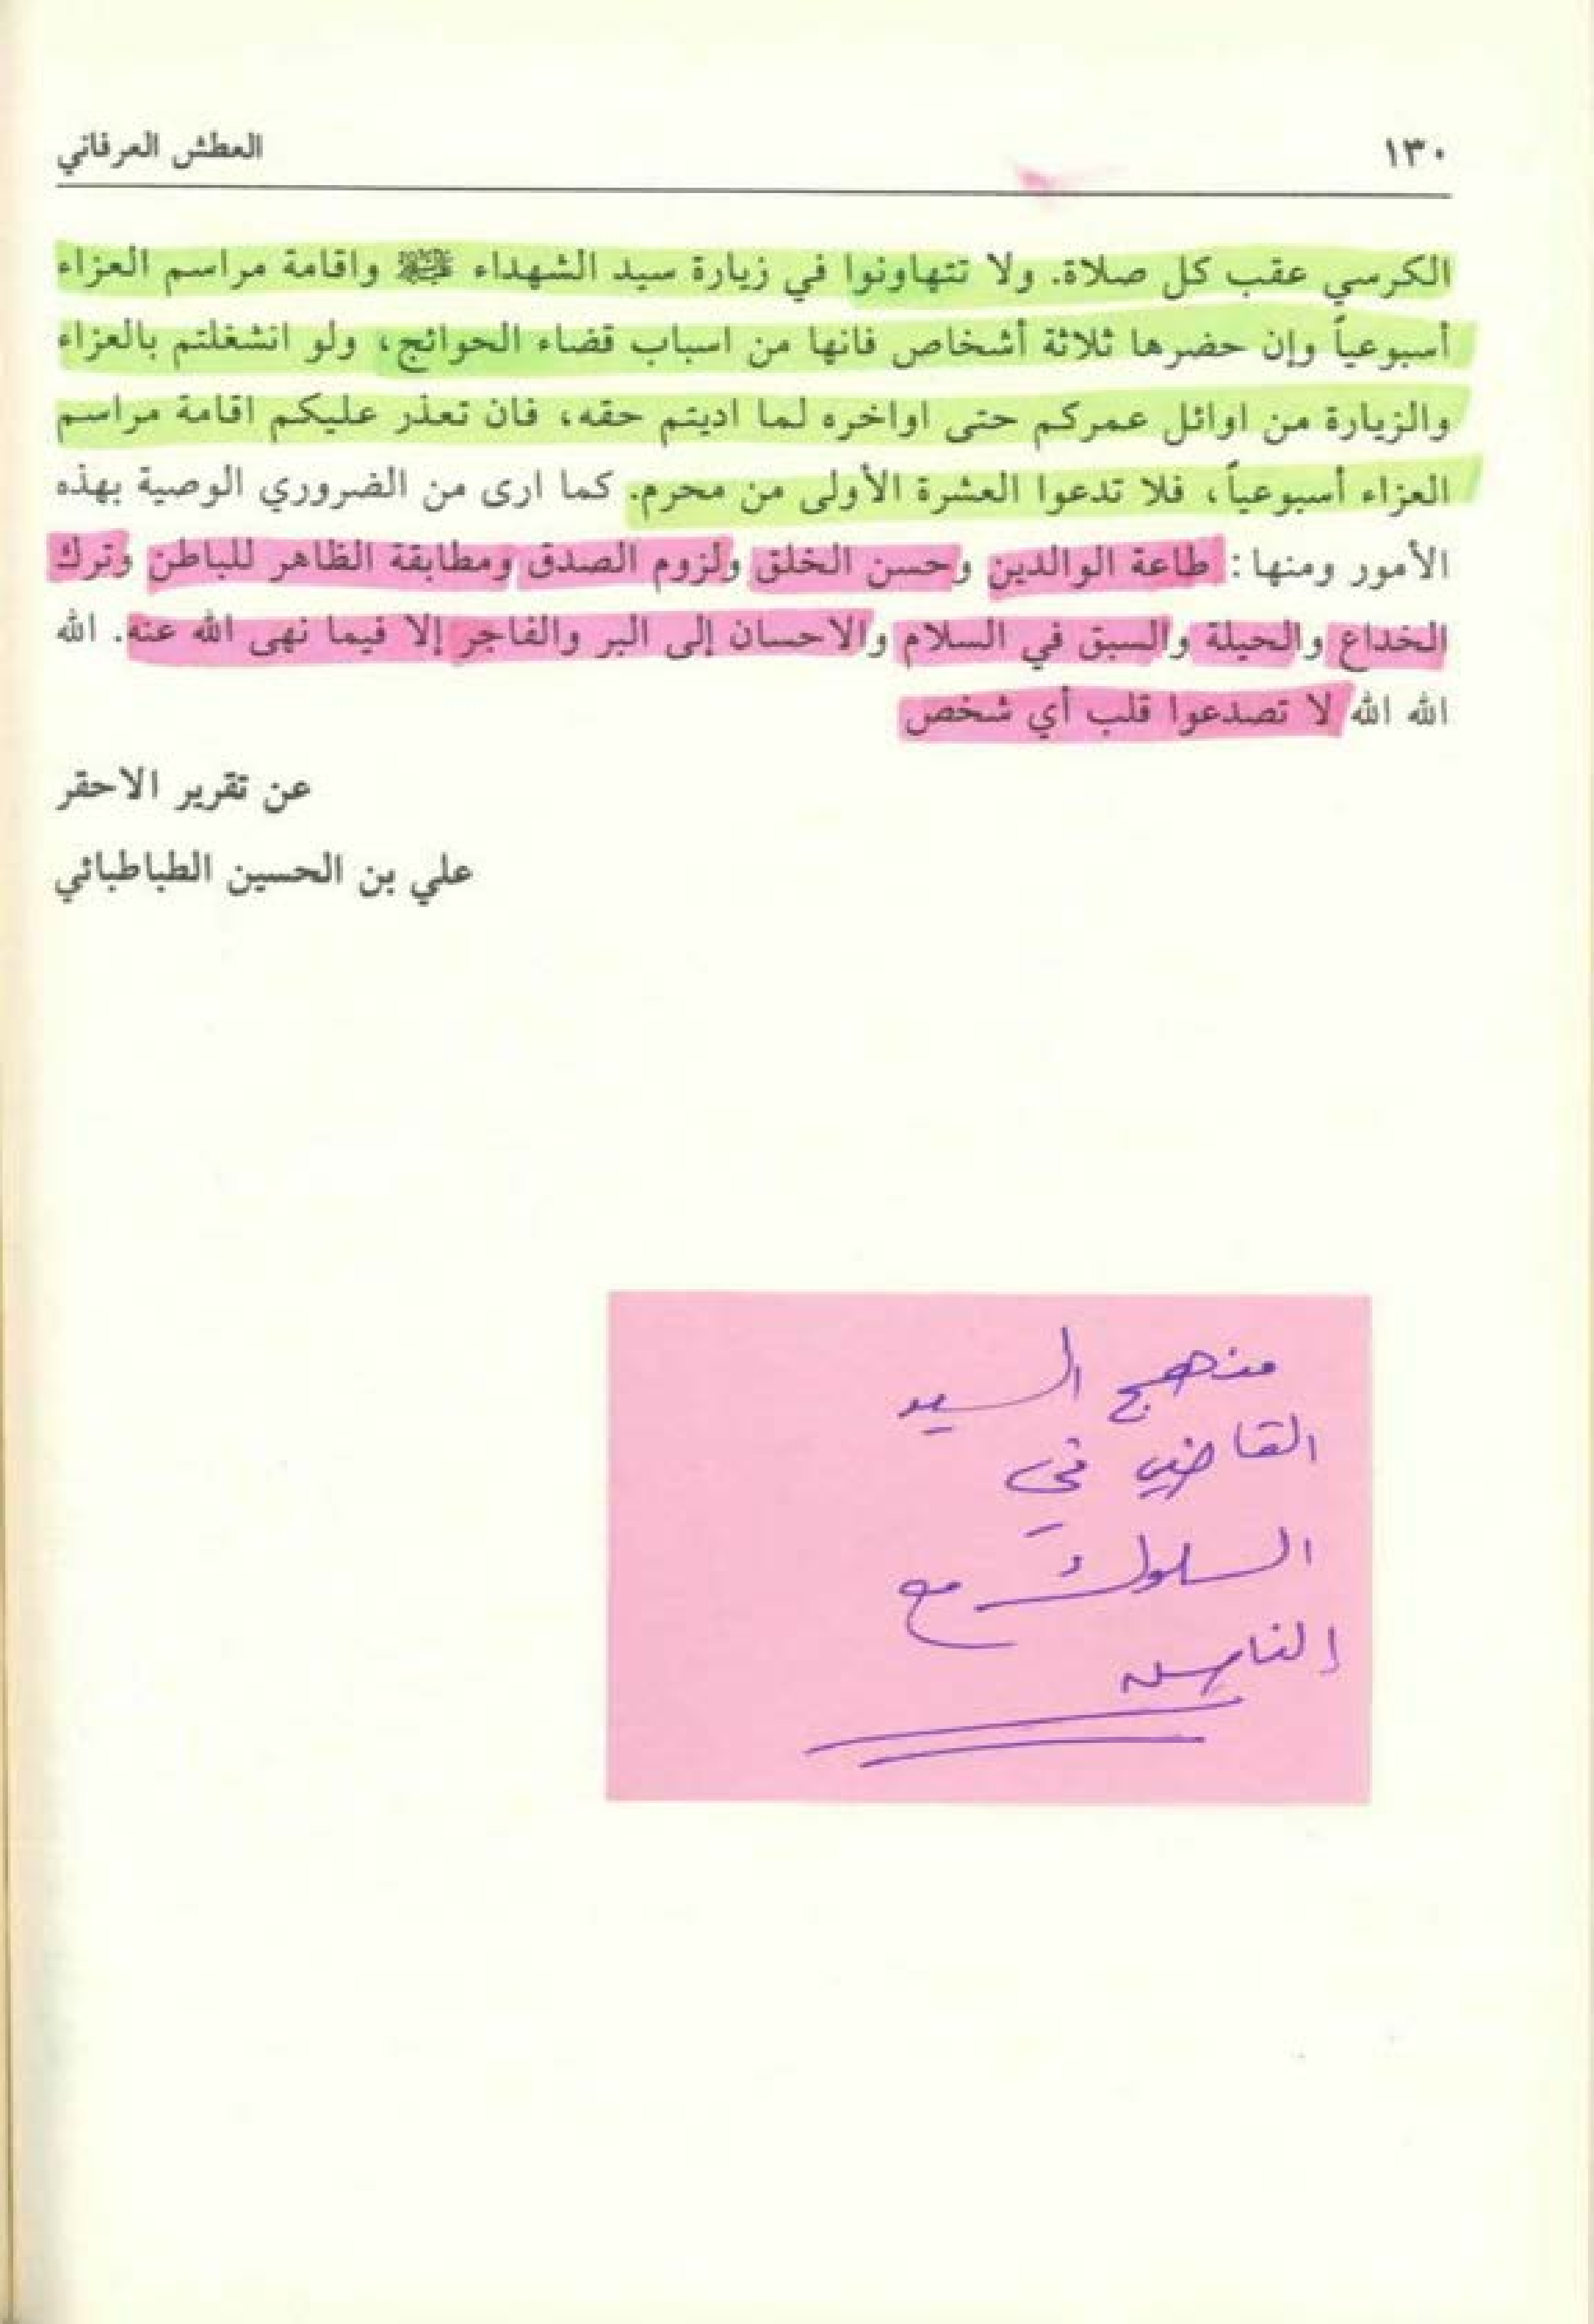 ١٣٠ العطش العرفاني
الكرسي عقب كل صلاة. ولا تتهاونوا في زيارة سيد الشهداء واقامة مراسم العزاء
أسبوعياً وإن حضرها ثلاثة أشخاص فانها من اسباب قضاء الحوائج، ولو انشغلتم بالعزاء
والزيارة من اوائل عمركم حتى اواخره لما اديتم حقه، فان تعذر عليكم اقامة مراسم
العزاء أسبوعياً، فلا تدعوا العشرة الأولى من محرم. كما ارى من الضروري الوصية بهذه
الأمور ومنها: طاعة الوالدين وحسن الخلق ولزوم الصدق ومطابقة الظاهر للباطن وترك
الخداع والحيلة والسبق في السلام والاحسان إلى البر والفاجر إلا فيما نهى الله عنه. الله
الله الله لا تصدعوا قلب أي شخص
عن تقرير الاحقر
علي بن الحسين الطباطبائي
منهج السيد
القاضي في
السلوك مع
الناس